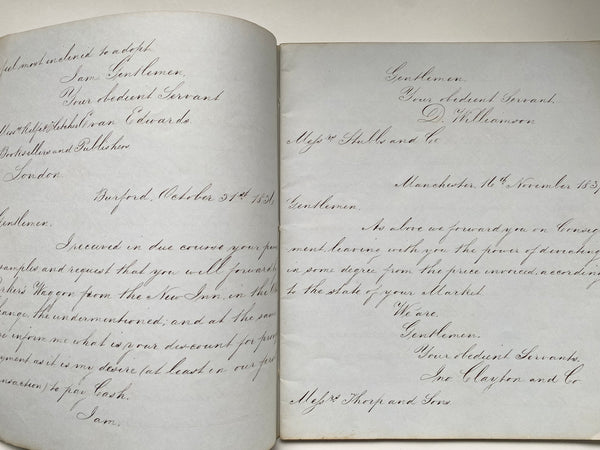 feel most inclined to adopt
I am Gentlemen,
Your obedient Servant
Evan Edwards.
Booksellers and Publishers
London.
Burford, October 31st 183
Gentlemen.
I received in due course your
samples and request that you will forward
Waggon from the New Inn, in the
the undermentioned; and at the
inform me what is your discount for
as it is my desire (at least in our
) to pay Cash.
I am.
Gentlemen.
Your obedient Servant.
D. Williamson
Messrs Stubbs and Co
Manchester, 16th November 183
Gentlemen.
As above we forward you on Consign
ment, leaving with you the power of deviating
in some degree from the price invoiced, according
to the state of your Market.
We are,
Gentlemen.
Your obedient Servants.
Jno Clayton and Co
Messrs Thorp and Sons